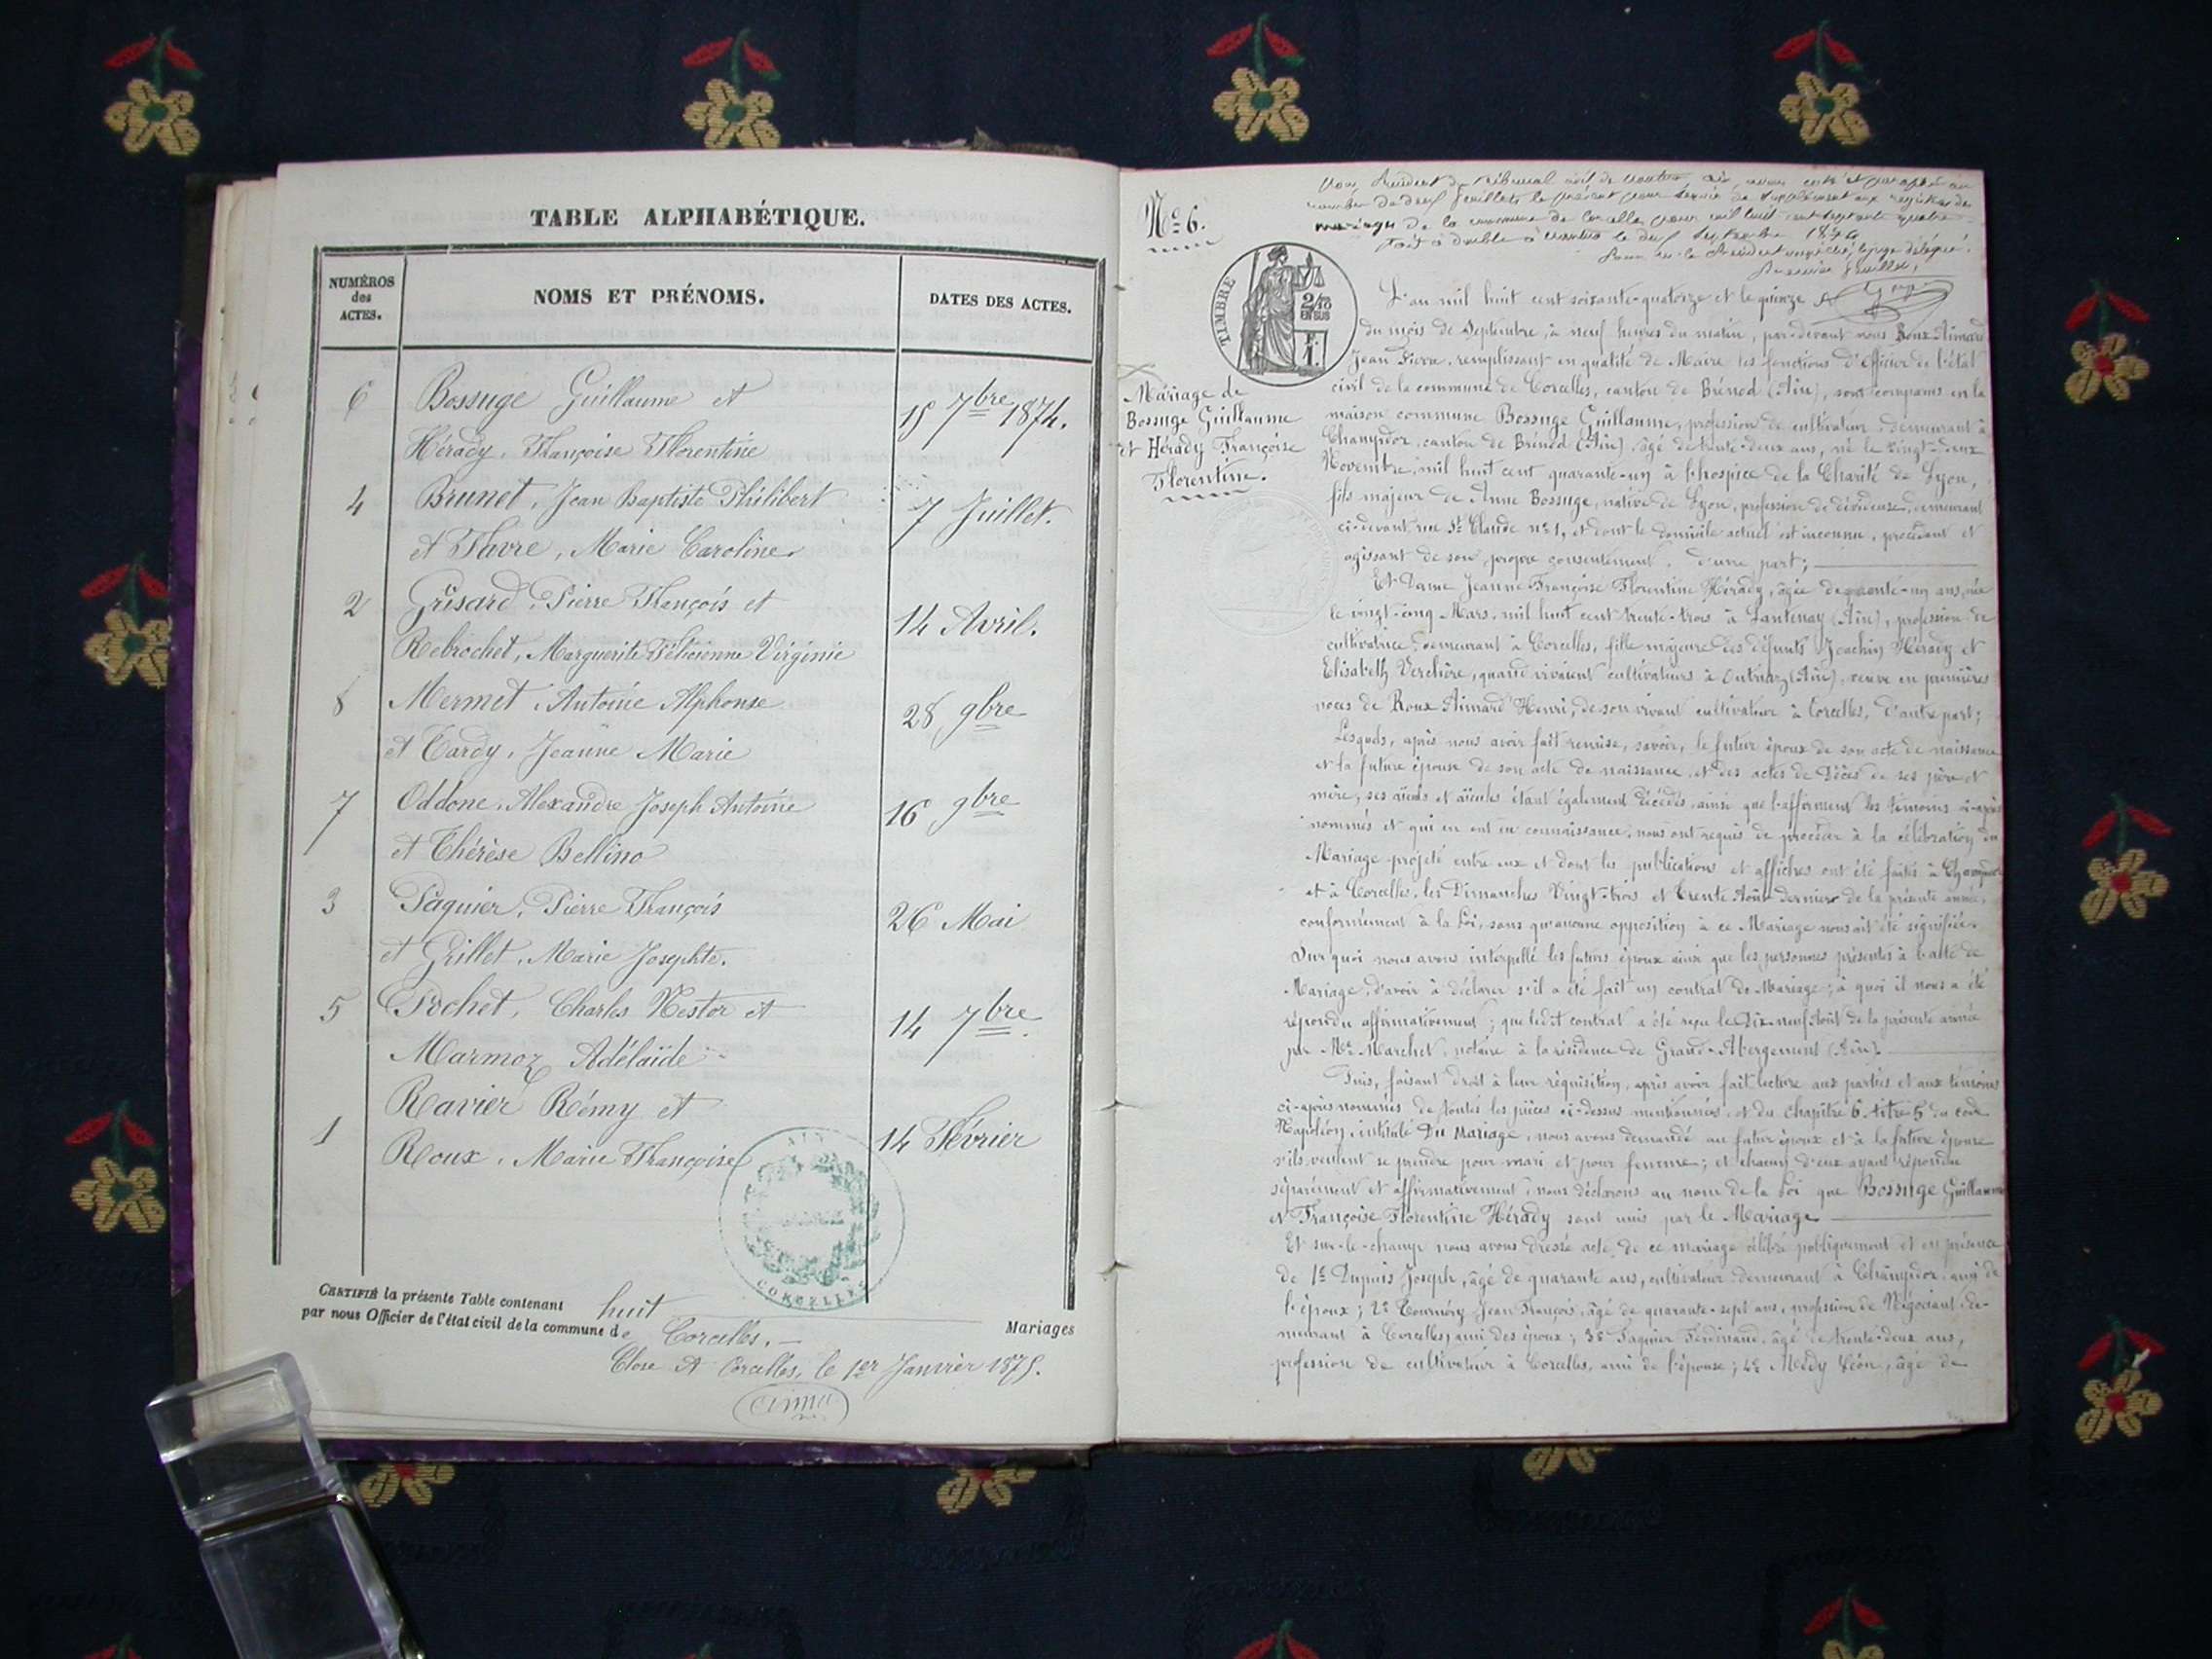 TABLE ALPHABÉTIQUE.
NUMÉROS
des
ACTES.
NOMS ET PRÉNOMS.
DATES DES ACTES.
6 Bossuge Guillaume et
Hérady, Françoise Florentine
15 7bre 1874.
4 Brunet, Jean Baptiste Philibert
et Favre, Marie Caroline.
7 Juillet.
2 Grisard, Pierre François et
Rebrochet, Marguerite Félicienne Virginie
14 Avril.
8 Mermet, Antoine Alphonse
et Cardy, Jeanne Marie
28 9bre
7 Oddone, Alexandre Joseph Antoine
et Thérèse Bellino
16 9bre
3 Paquier, Pierre François
et Grillet, Marie Josephte.
26 Mai
5 Pochet, Charles Nestor et
Marmoz Adélaïde
14 7bre
1 Ravier Rémy et
Roux, Marie Françoise
14 Février
AIN
CORCELLES
CERTIFIÉ la présente Table contenant huit Mariages
par nous Officier de l'état civil de la commune de Corcelles.
Close à Corcelles, le 1er Janvier 1875.
No 6.
Nous, Président du tribunal civil de Nantua, Ain, avons coté et paraphé au
nombre de deux feuillets le présent pour servir de supplément aux registres de
mariages de la commune de Corcelles pour mil huit cent septante quatre
Fait à double à Nantua le deux Septembre 1874
Pour le Président empêché, le juge délégué.
Premier feuillet,
TIMBRE
2/10
EN SUS
F.
1.
Mariage de
Bossuge Guillaume
et Hérady Françoise
Florentine.
L'an mil huit cent soixante-quatorze et le quinze
du mois de Septembre, à neuf heures du matin, par-devant nous Roux-Aimard
Jean Pierre, remplissant en qualité de Maire les fonctions d'Officier de l'état
civil de la commune de Corcelles, canton de Brénod (Ain), sont comparus en la
maison commune Bossuge Guillaume, profession de cultivateur, demeurant à
Champdor, canton de Brénod (Ain), âgé de trente-deux ans, né le vingt-deux
Novembre, mil huit cent quarante-un à l'hospice de la Charité de Lyon,
fils majeur de Anne Bossuge, native de Lyon, profession de dévideuse, demeurant
ci-devant rue St Claude no 1, et dont le domicile actuel est inconnu, procédant et
agissant de son propre consentement, d'une part;
Et Dame Jeanne Françoise Florentine Hérady, âgée de quarante-un ans, née
le vingt-cinq Mars, mil huit cent trente-trois à Lantenay (Ain), profession de
cultivatrice, demeurant à Corcelles, fille majeure des défunts Joachin Hérady et
Elisabeth Verchère, quand vivaient cultivateurs à Outriaz (Ain), veuve en premières
noces de Roux Aimard Henri, de son vivant cultivateur à Corcelles, d'autre part;
Lesquels, après nous avoir fait remise, savoir, le futur époux de son acte de naissance
et la future épouse de son acte de naissance, et des actes de Décès de ses père et
mère, ses aïeuls et aïeules étant également décédés, ainsi que l'affirment les témoins ci-après
nommés et qui en ont eu connaissance, nous ont requis de procéder à la célébration du
Mariage projeté entre eux et dont les publications et affiches ont été faites à Champdor
et à Corcelles, les Dimanches Vingt-trois et Trente Août dernier de la présente année,
conformément à la Loi, sans qu'aucune opposition à ce Mariage nous ait été signifiée.
Sur quoi nous avons interpellé les futurs époux ainsi que les personnes présentes à l'acte de
Mariage, d'avoir à déclarer s'il a été fait un contrat de Mariage; à quoi il nous a été
répondu affirmativement; que ledit contrat a été reçu le Dix-neuf Août de la présente année
par Me Marchet, notaire à la résidence de Grand-Abergement (Ain).
Puis, faisant droit à leur réquisition, après avoir fait lecture aux parties et aux témoins
ci-après nommés de toutes les pièces ci-dessus mentionnées, et du chapitre 6 titre 5 du code
Napoléon, intitulé Du Mariage, nous avons demandé au futur époux et à la future épouse
s'ils veulent se prendre pour mari et pour femme; et chacun d'eux ayant répondu
séparément et affirmativement, nous déclarons au nom de la Loi que Bossuge Guillaume
et Françoise Florentine Hérady sont unis par le Mariage
Et sur-le-champ nous avons dressé acte de ce mariage célébré publiquement et en présence
de 1o Dupuis Joseph, âgé de quarante ans, cultivateur demeurant à Champdor, ami de
l'époux; 2o Tournéry Jean François, âgé de quarante-sept ans, profession de Négociant de-
meurant à Corcelles, ami des époux; 3o Paquier Ferdinand, âgé de trente-deux ans,
profession de cultivateur à Corcelles, ami de l'épouse; 4o Léon, âgé de